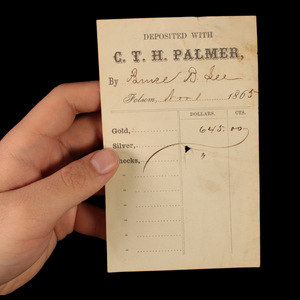 DEPOSITED WITH
C. T. H. PALMER,
By Bruce B Lee
Folsom, Nov 1 1865
DOLLARS. CTS.
Gold, 645. 00
Silver,
Checks,
"
"
"
"
"
"